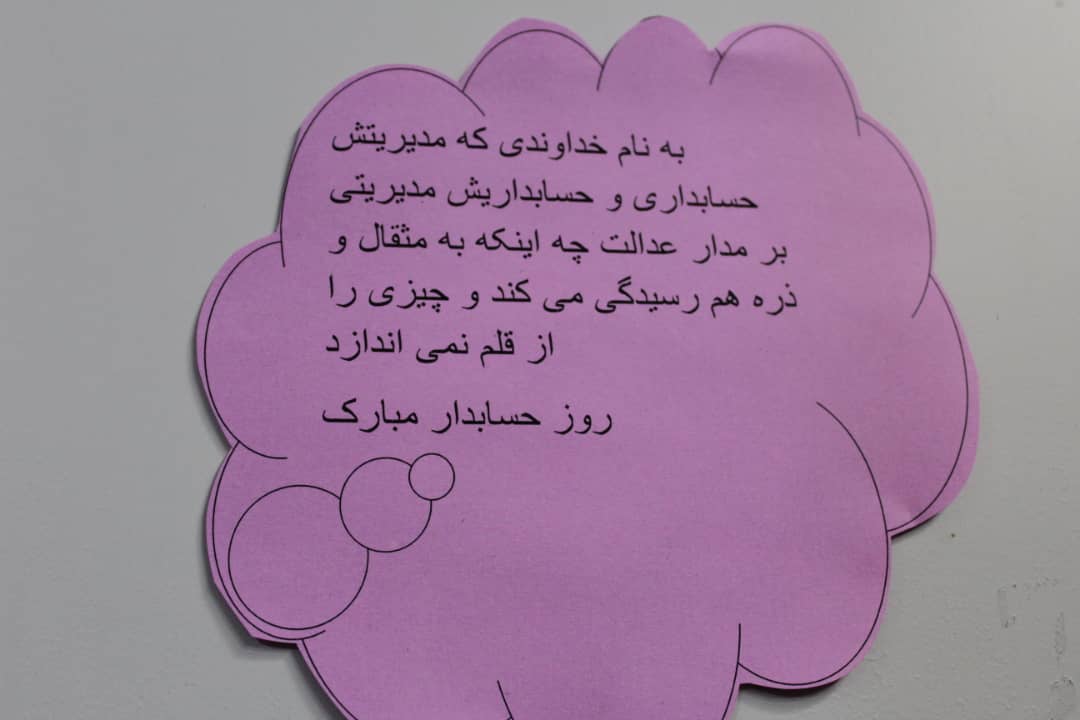 به نام خداوندی که مدیریتش
حسابداری و حسابداریش مدیریتی
بر مدار عدالت چه اینکه به مثقال و
ذره هم رسیدگی می کند و چیزی را
از قلم نمی اندازد
روز حسابدار مبارک